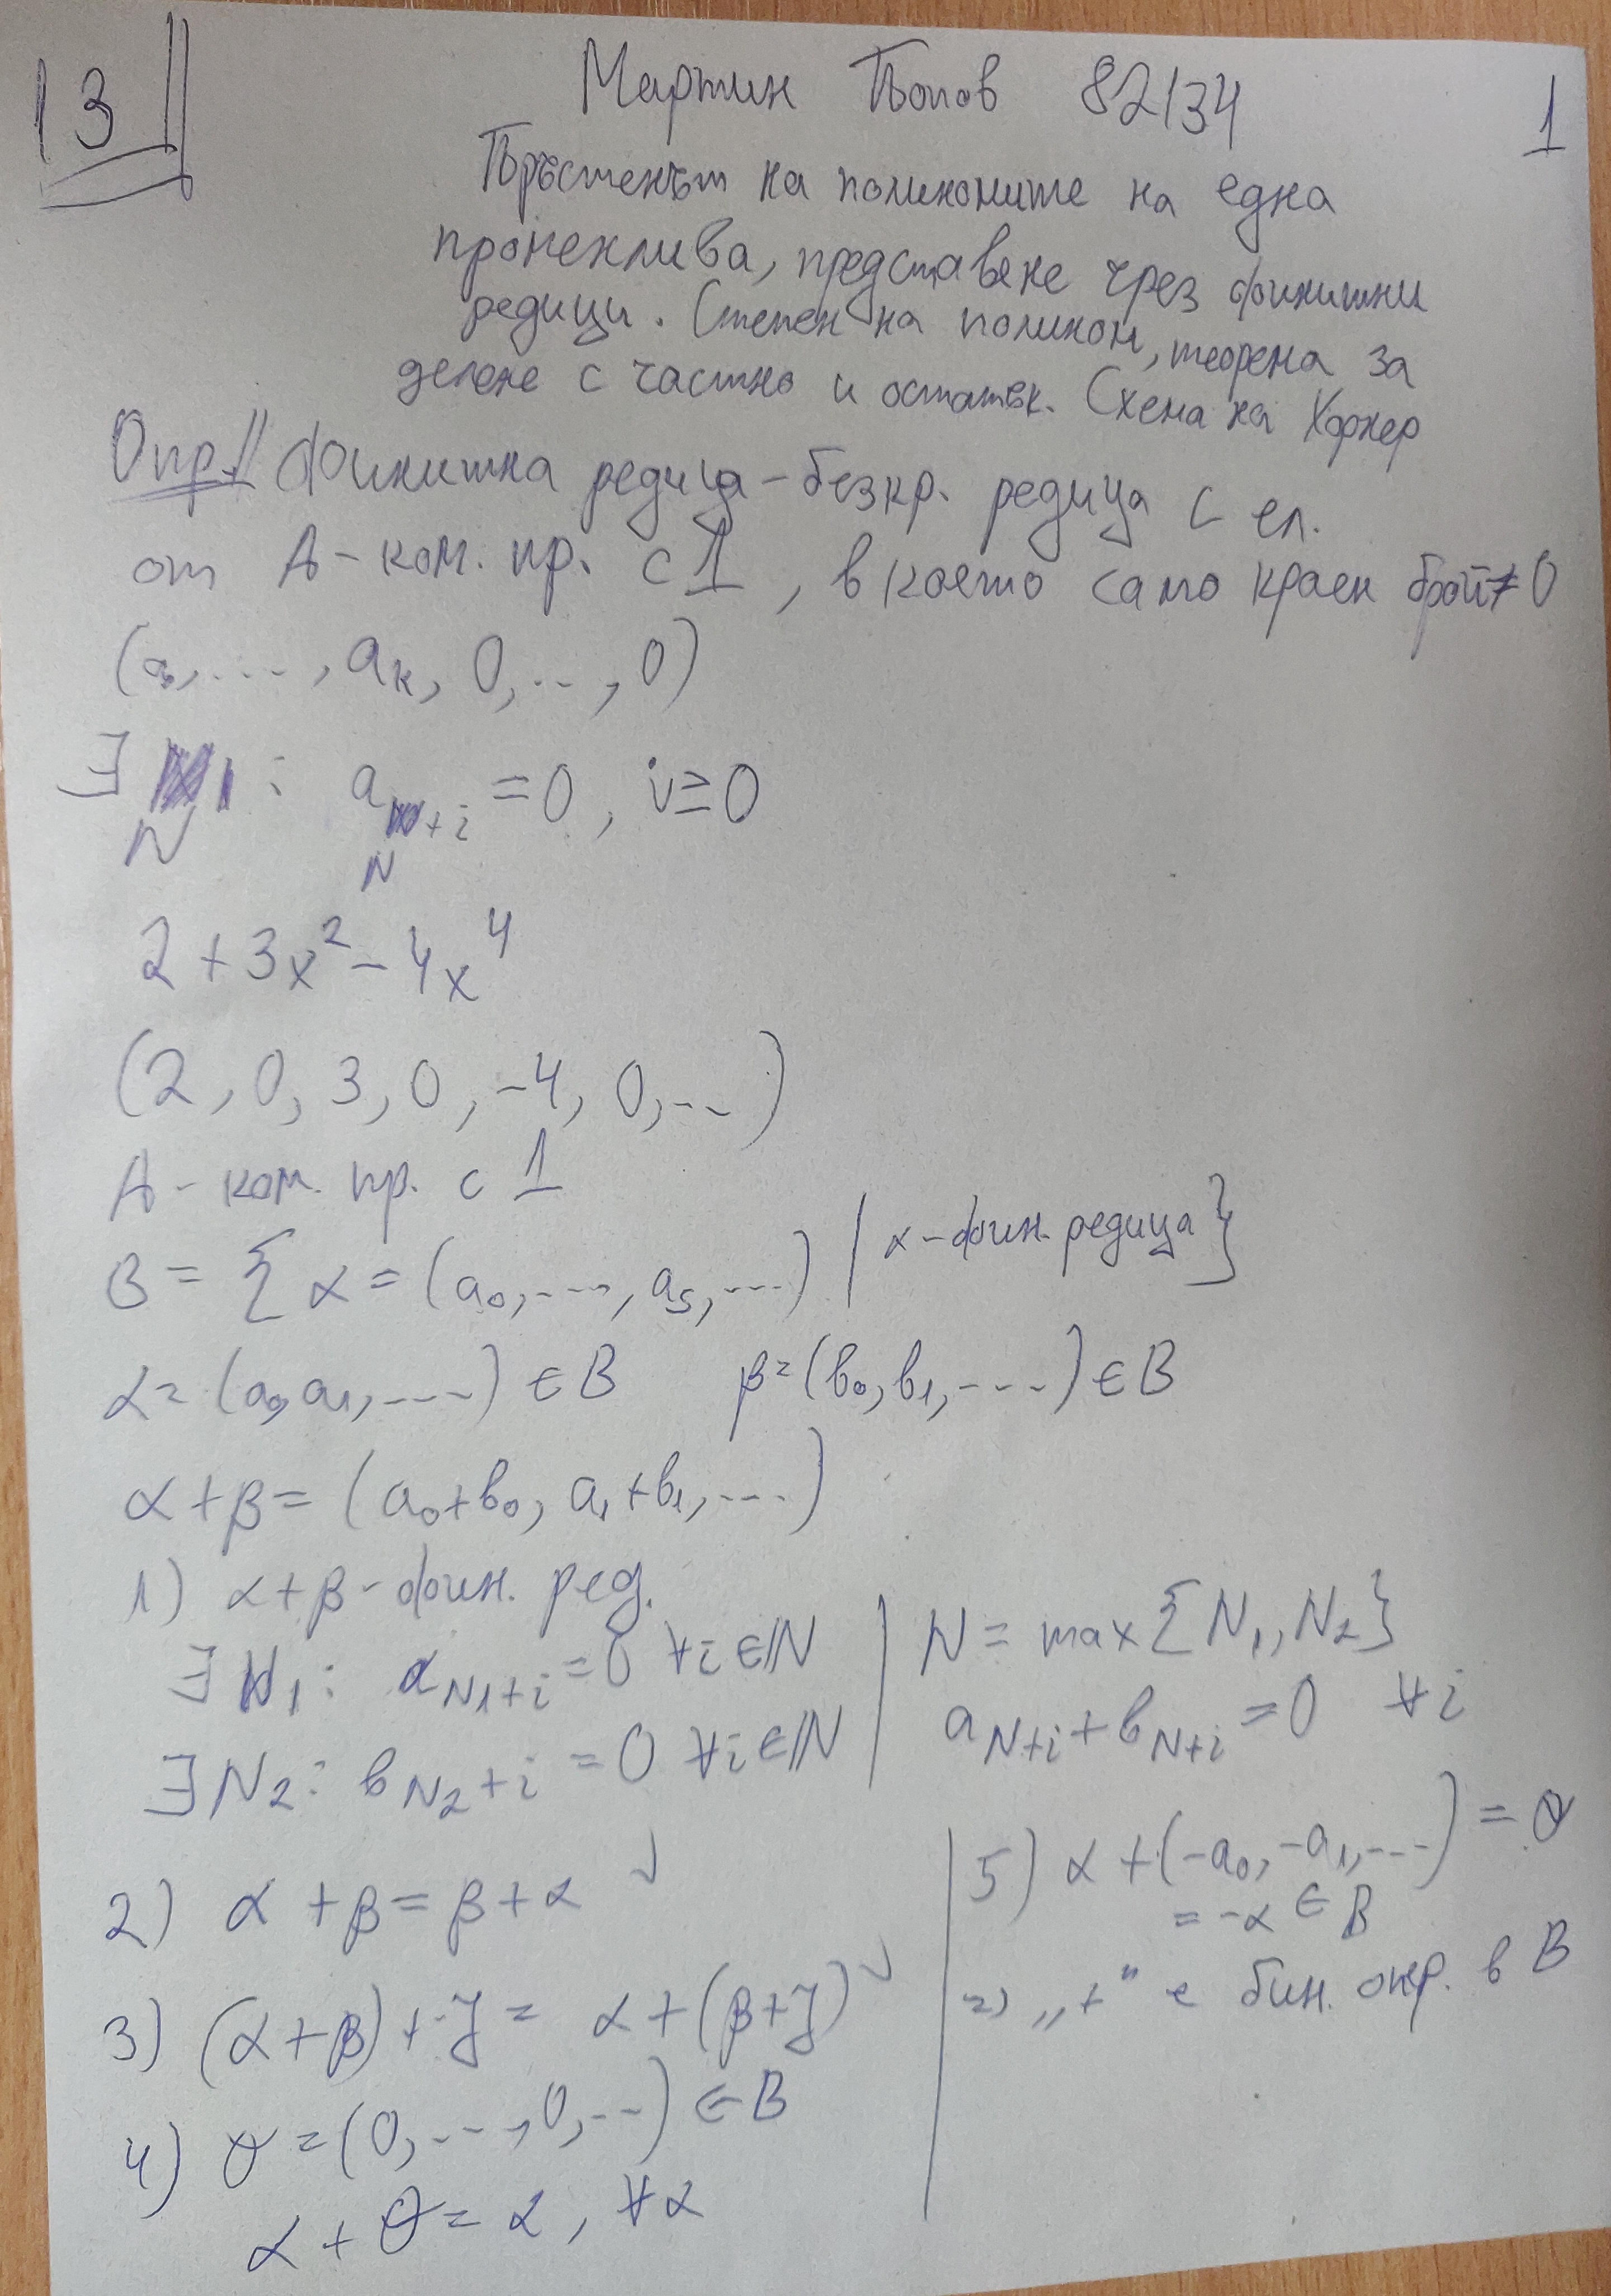 13
Мартин Попов 82134
1
Пръстенът на полиномите на една
променлива, представяне чрез финитни
редици. Степен на полином, теорема за
делене с частно и остатък. Схема на Хорнер
Опр. Финитна редица - безкр. редица с ел.
от A - ком. пр. с 1, в която само краен брой ≠ 0
(a₀, ..., aₖ, 0, ..., 0)
∃ N : a_{N+i} = 0, i ≥ 0
2 + 3x² - 4x⁴
(2, 0, 3, 0, -4, 0, ...)
A - ком. пр. с 1
B = { α = (a₀, ..., a₅, ...) | α - фин. редица}
α = (a₀, a₁, ...) ∈ B β = (b₀, b₁, ...) ∈ B
α + β = (a₀+b₀, a₁+b₁, ...)
1) α + β - фин. ред.
∃ N₁: a_{N₁+i} = 0 ∀i ∈ ℕ
∃ N₂: b_{N₂+i} = 0 ∀i ∈ ℕ
N = max{N₁, N₂}
a_{N+i} + b_{N+i} = 0 ∀i
2) α + β = β + α ✓
3) (α + β) + γ = α + (β + γ) ✓
4) θ = (0, ..., 0, ...) ∈ B
α + θ = α, ∀α
5) α + (-a₀, -a₁, ...) = θ
= -α ∈ B
=> „+" е бин. опер. в B